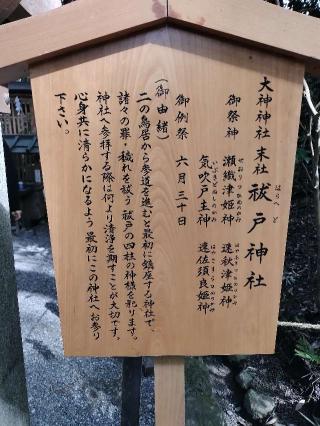 大神神社 末社 祓戸神社
はらへど
御祭神 瀬織津姫神 速秋津姫神
せおりつひめのかみ
気吹戸主神 速佐須良姫神
いぶきどぬしのかみ
御例祭 六月三十日
(御由緒)
二の鳥居から参道を進むと最初に鎮座する神社で、
諸々の罪・穢れを祓う 祓戸の四柱の神様を祀ります。
神社へ参拝する際は何より清浄を期すことが大切です。
心身共に清らかになるよう 最初にこの神社へお参り
下さい。